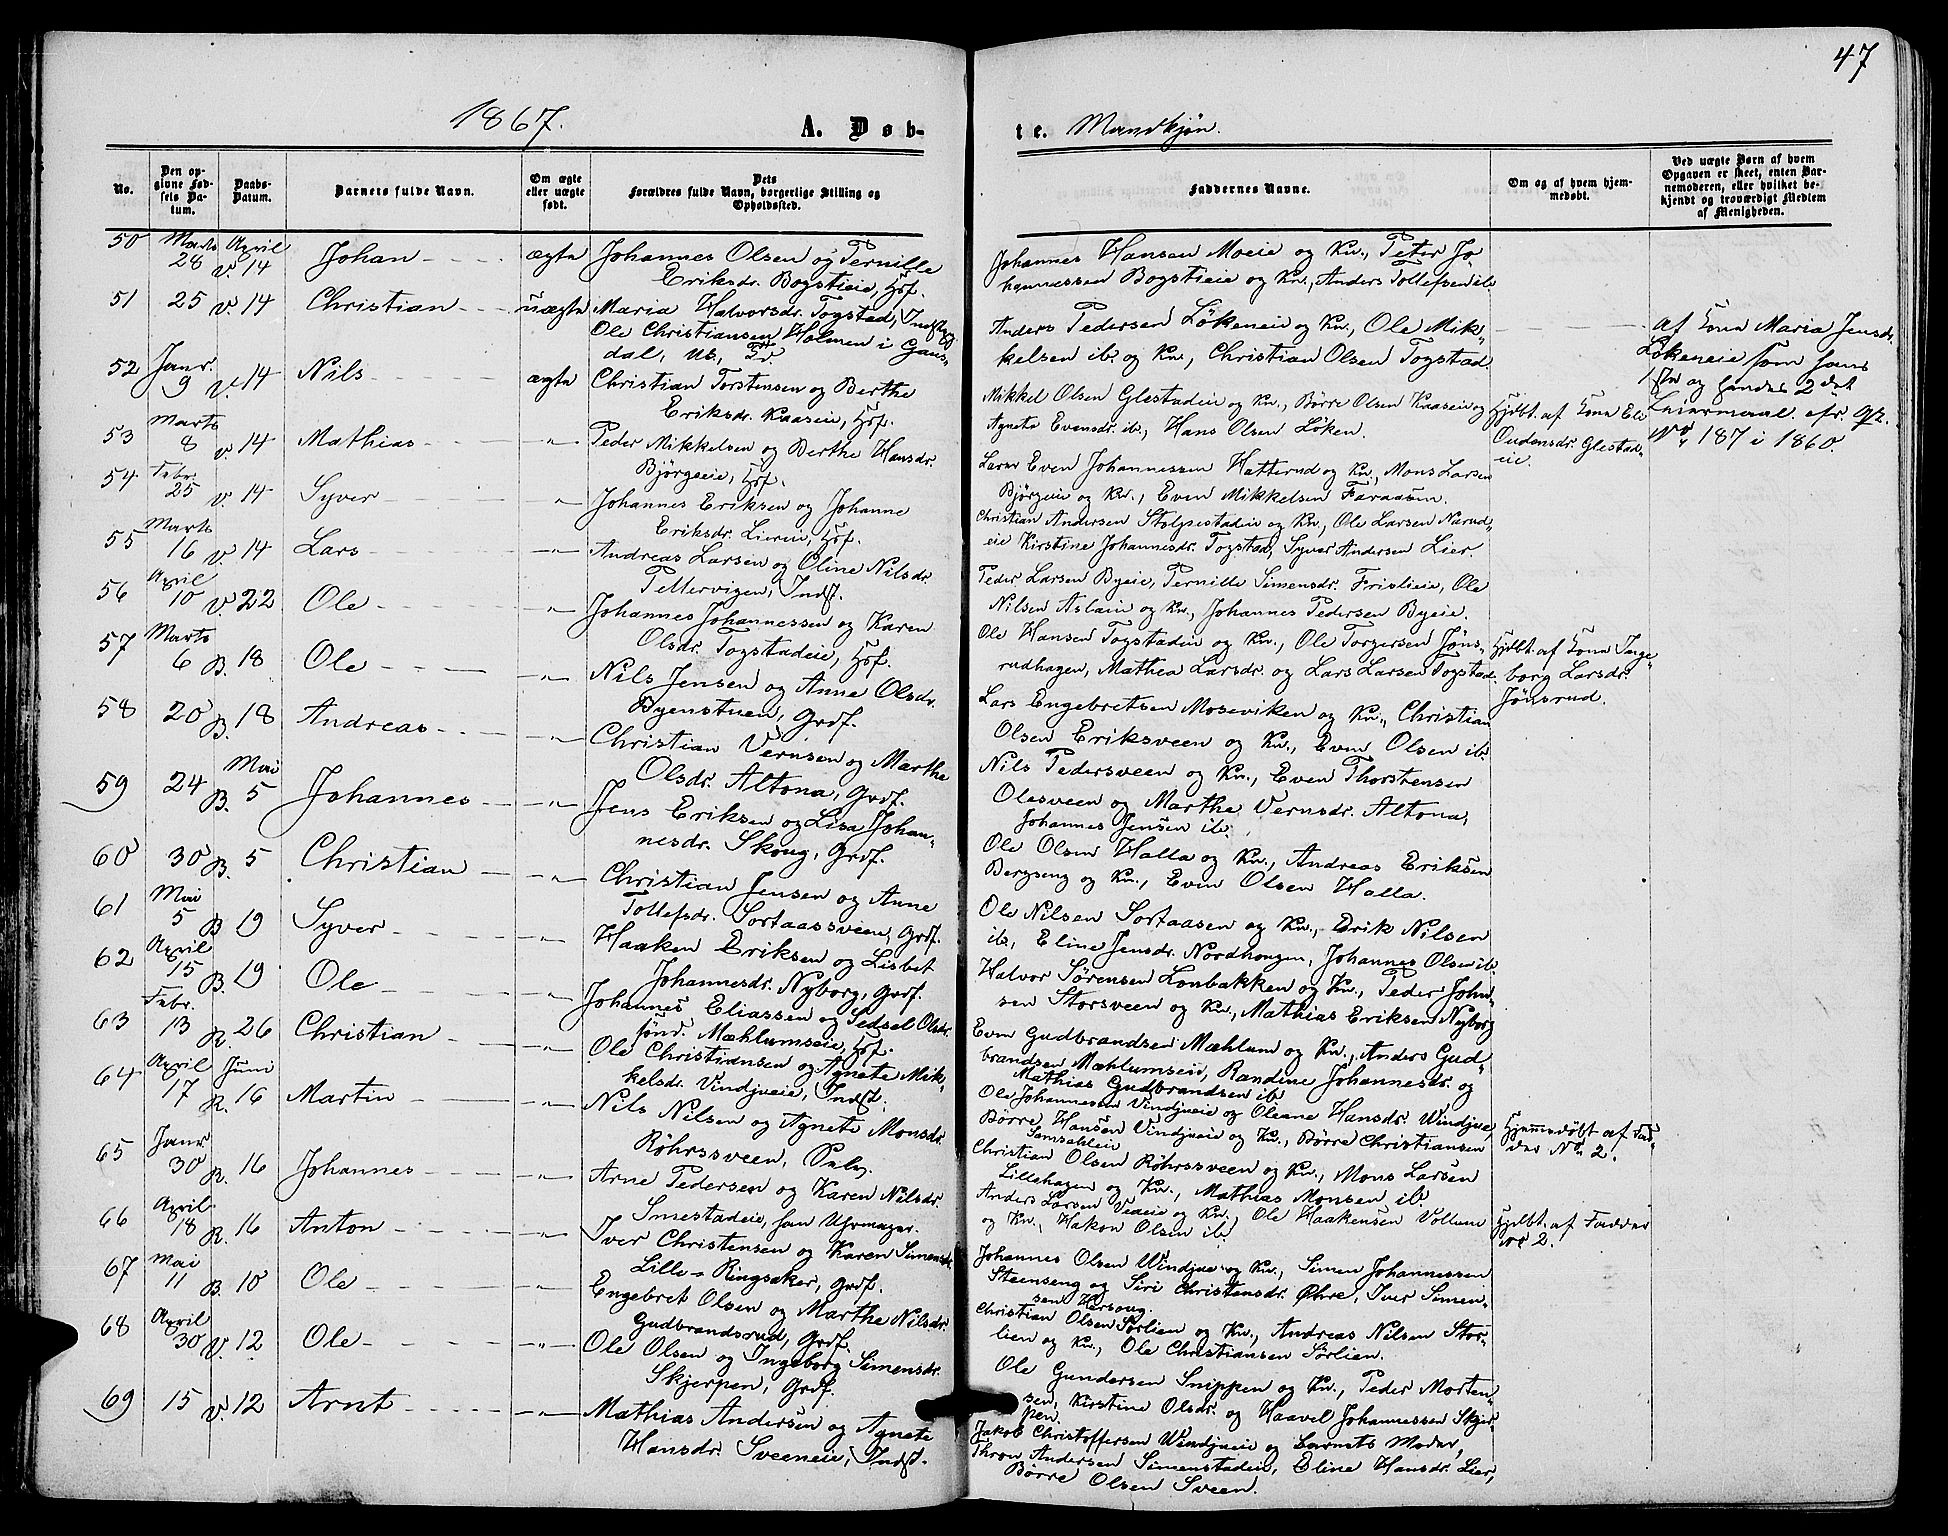 47
1867.
A. Døb-
te. Mandkjøn.
No.
Den opgivne Fødsels Datum.
Daabs-Datum.
Barnets fulde Navn.
Om ægte eller uægte født.
Dets Forældres fulde Navn, borgerlige Stilling og Opholdssted.
Faddernes Navne.
Om og af hvem hjemmedøbt.
Ved uægte Børn af hvem Opgaven er skeet, enten Barnemoderen, eller hvilket bekjendt og troværdigt Medlem af Menigheden.
50 Marts 28 April V. 14 Johan ægte Johannes Olsen og Pernille
Eriksdr. Bogstieie, Hsf.
Johannes Hansen Moeie og Kn., Peter Jo
hannessen Bogstieie og Kn., Anders Tollefsen ib.
51 25 V. 14 Christian uægte Maria Halvorsdr. Togstad, Indst.
Ole Christiansen Holmen i Gaus-
dal, Ub,
Anders Pedersen Løkeneie og Kn., Ole Mik-
kelsen ib. og Kn., Christian Olsen Togstad.
af Kona Maria Jensdr.
Løkeneie som hans
1ste og hendes 2det
Leiermaal. cfr.
No 187 i 1860.
52 Janr. 9 V. 14 Nils ægte Christian Torstensen og Berthe
Eriksdr. Kaaseie, Hsf.
Mikkel Olsen Glestadeie og Kn., Børre Olsen Kaaseie og
Agnete Evensdr. ib., Hans Olsen Løken.
Hjdbt. af Kona Eli
Oudensdr. Glestad-
eie.
53 Marts 8 V. 14 Mathias -"- Peder Mikkelsen og Berthe Hansdr.
Bjørgeeie, Hsf.
Lars Even Johannessen Hatterud og Kn., Mons Larsen
Bjørgeie og Kn., Even Mikkelsen Faraasen.
54 Febr. 25 V. 14 Syver -"- Johannes Eriksen og Johanne
Eriksdr. Liereie, Hsf.
Christian Andersen Stolpestadeie og Kn., Ole Larsen Narud-
eie Kirstine Johannesdr. Togstad, Syver Andersen Lier.
55 Marts 16 V. 14 Lars -"- Andreas Larsen og Oline Nilsdr.
Pellervigen, Indst.
Peder Larsen Byeie, Pernille Simensdr. Frislieie, Ole
Nilsen Aslaeie og Kn., Johannes Pedersen Byeie.
56 April 10 V. 22 Ole -"- Johannes Johannessen og Karen
Olsdr. Togstadeie, Hsf.
Ole Hansen Togstadeie og Kn., Ole Torgersen Jøns-
rudhagen, Mathea Larsdr. og Lars Larsen Togstad.
Hjdbt. af Kona Inge-
borg Larsdr.
Jønsrud.
57 Marts 6 B. 18 Ole -"- Nils Jensen og Anne Olsdr.
Byenstuen, Grdf.
Lars Engebretsen Moseviken og Kn., Christian
Olsen Eriksveen og Kn., Even Olsen ib.
58 20 B. 18 Andreas -"- Christian Vernsen og Marthe
Olsdr. Altona, Grdf.
Nils Pedersveen og Kn., Even Thorstensen
Olesveen og Marthe Vernsdr. Altona,
Johannes Jensen ib.
59 24 Mai B. 5 Johannes -"- Jens Eriksen og Lisa Johan-
nesdr. Skoug, Grdf.
Ole Olsen Halla og Kn., Andreas Eriksen
Bergseng og Kn., Even Olsen Halla.
60 30 B. 5 Christian -"- Christian Jensen og Anne
Tollefsdr. Sortaassveen, Grdf.
Ole Nilsen Sortaasen og Kn., Erik Nilsen
ib., Eline Jensdr. Nordhougen, Johannes Olsen ib.
61 Mai 5 B. 19 Syver -"- Haaken Eriksen og Lisbet
Johannesdr. Nyborg, Grdf.
Halvor Sørensen Lonbakken og Kn., Peder John-
sen Storsveen og Kn., Mathias Eriksen Nyborg
62 April 15 B. 19 Ole -"- Johannes Eliassen og Sedsel Olsdr.
sønd. Mæhlumseie, Hsf.
Even Gudbrandsen Mæhlum og Kn., Anders Gud-
brandsen Mæhlumseie, Randine Johannesdr. og
Mathias Gudbrandsen ib.
63 Febr. 13 R. 26 Christian -"- Ole Christiansen og Agnete Mik-
kelsdr. Vindjueie, Indst.
Ole Johannessen Vindjueie og Oleane Hansdr. Windjue,
Børre Hansen Vindjueie og Kn., Børre Christiansen
Samsahleie
Hjemmedøbt af Fad-
der No 2.
64 April 17 Juni R. 16 Martin -"- Nils Nilsen og Agnete Monsdr.
Røhrssveen,
Christian Olsen Røhrssveen og Kn., Mons Larsen
Lillehagen og Kn., Mathias Monsen ib.
65 Janr. 30 R. 16 Johannes -"- Arne Pedersen og Karen Nilsdr.
Smestadeie, han Uhrmager.
Anders Larsen Vedeie og Kn., Ole Haakensen Vollum
og Kn., Hakon Olsen ib.
Hjdbt. af Fadder
No 2.
66 April 18 R. 16 Anton -"- Iver Christensen og Karen Simensdr.
Lille-Ringsaker, Grdf.
Johannes Olsen Windjue og Kn., Simen Johannessen
Steenseng og Siri Christensdr. Øhre, Iver Simen-
sen Hersoug.
67 Mai 11 B. 10 Ole -"- Engebret Olsen og Marthe Nilsdr.
Gudbrandsrud, Grdf.
Christian Olsen Sørlien og Kn., Andreas Nilsen Stor-
lien og Kn., Ole Christiansen Sørlien.
68 April 30 V. 12 Ole -"- Ole Olsen og Ingeborg Simensdr.
Skjerpen, Grdf.
Ole Gundersen Snippen og Kn., Peder Morten-
sen, Kirstine Olsdr. og Haavel Johannessen Skjer-
pen.
69 15 V. 12 Arnt -"- Mathias Andersen og Agnete
Hansdr. Sveeneie, Indst.
Jakob Christoffersen Windjueie og Barnets Moder,
Thron Andersen Simenstadeie, Eline Hansdr. Lier,
Børre Olsen Sveen.